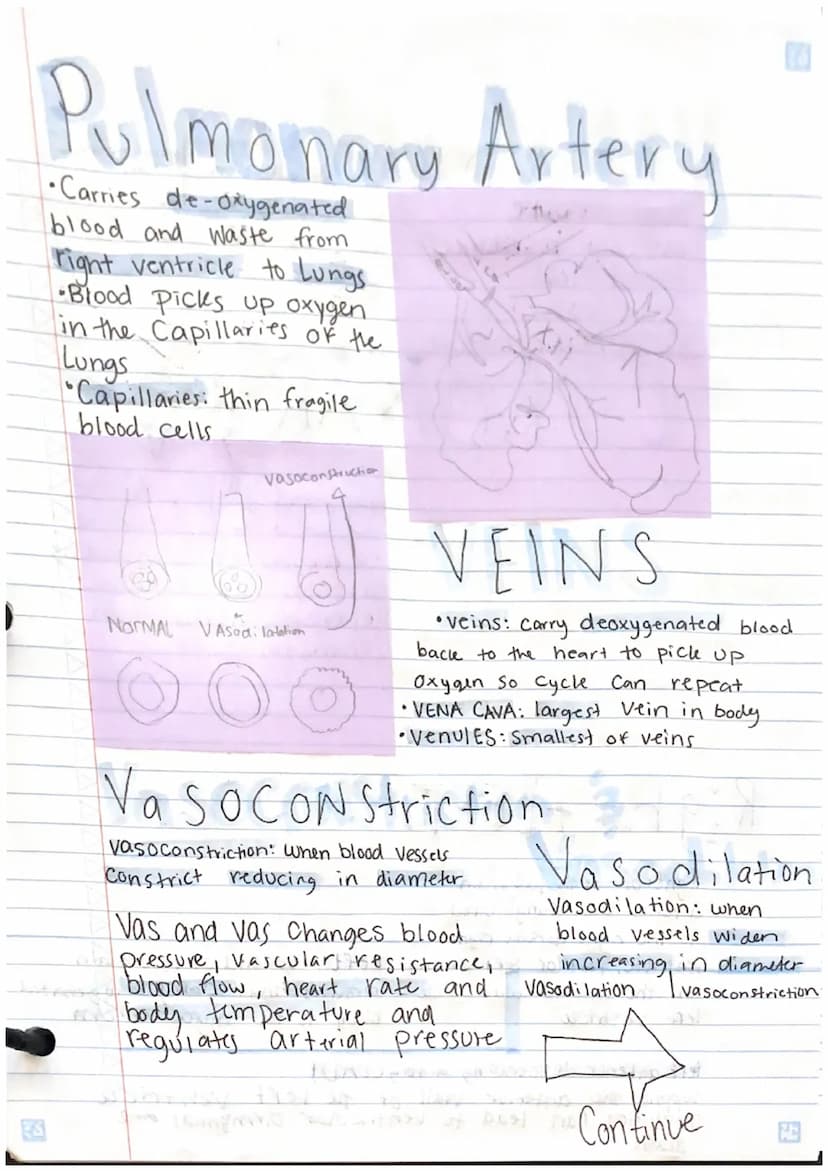 Pulmonary Artery
•Carries de-oxygenated
blood and waste from
right ventricle to Lungs
•Blood picks up oxygen
in the Capillaries of the
Lungs
•Capillaries: thin fragile
blood cells
Vasoconstruction
NORMAL VAsodilatation
VEINS
•veins: carry deoxygenated blood
back to the heart to pick up
oxygen so cycle can repeat
•VENA CAVA: largest vein in body
•VenulES: smallest of veins
VasoCONStriction
vasoconstriction: when blood vessels
constrict reducing in diameter
Vas and vas changes blood
pressure, vascular resistance,
blood flow, heart rate and
body temperature and
regulates arterial pressure
Vasodilation
Vasodilation: when
blood vessels widen
increasing in diameter
vasodilation | vasoconstriction
Continue